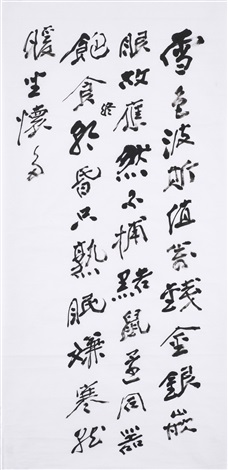 雪色波斯值萬錢金銀嵌
眼故應然不捕黠鼠還同器
飽食終昏只熟眠嫌寒就
暖坐懷多